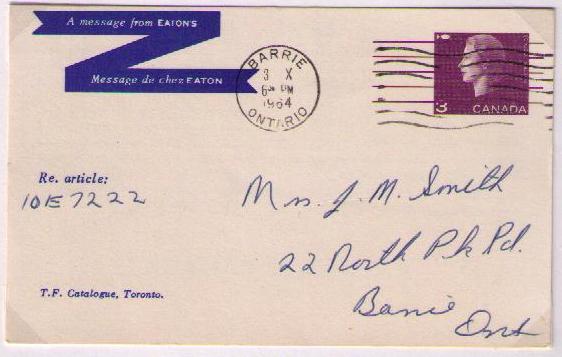 A message from EATON'S
Message de chez EATON
BARRIE
3 X
6 PM
1964
ONTARIO
3 CANADA
Re. article:
10E7222
Mrs. J. M. Smith
22 North Pk Rd.
Barrie
Ont
T.F. Catalogue, Toronto.